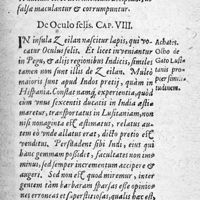 falsa maculantur & corrumpuntur.
De Oculo felis. CAP. VIII.
IN insula Zeilan nascitur lapis, qui vo-
catur Oculus felis. Et licet inveniantur
in Pegu, & aliis regionibus Indicis, similes
tamen non sunt illis de Zeilan. Multò
maioris sunt apud Indos pretij, quàm in
Hispania. Constat namq; experientia, quòd
cum unus sexcentis ducatis in India æsti-
maretur, transportatus in Lusitaniam, non
nisi nonaginta est æstimatus, relatus au-
tem eò unde allatus erat, dicto pretio est
venditus. Persuasent sibi Indi, eius qui
hanc gemmam possidet, facultates non modo
minui, sed semper incrementum accipere &
augeri. Sed non est quod miremur, inter
gentem tam barbaram sparsas esse opinio
nes erroneas & superstitiosas, qualis hæc est,
Achates.
Olho de
Gato Lusi-
tanis pro-
pter simi-
tudinem.